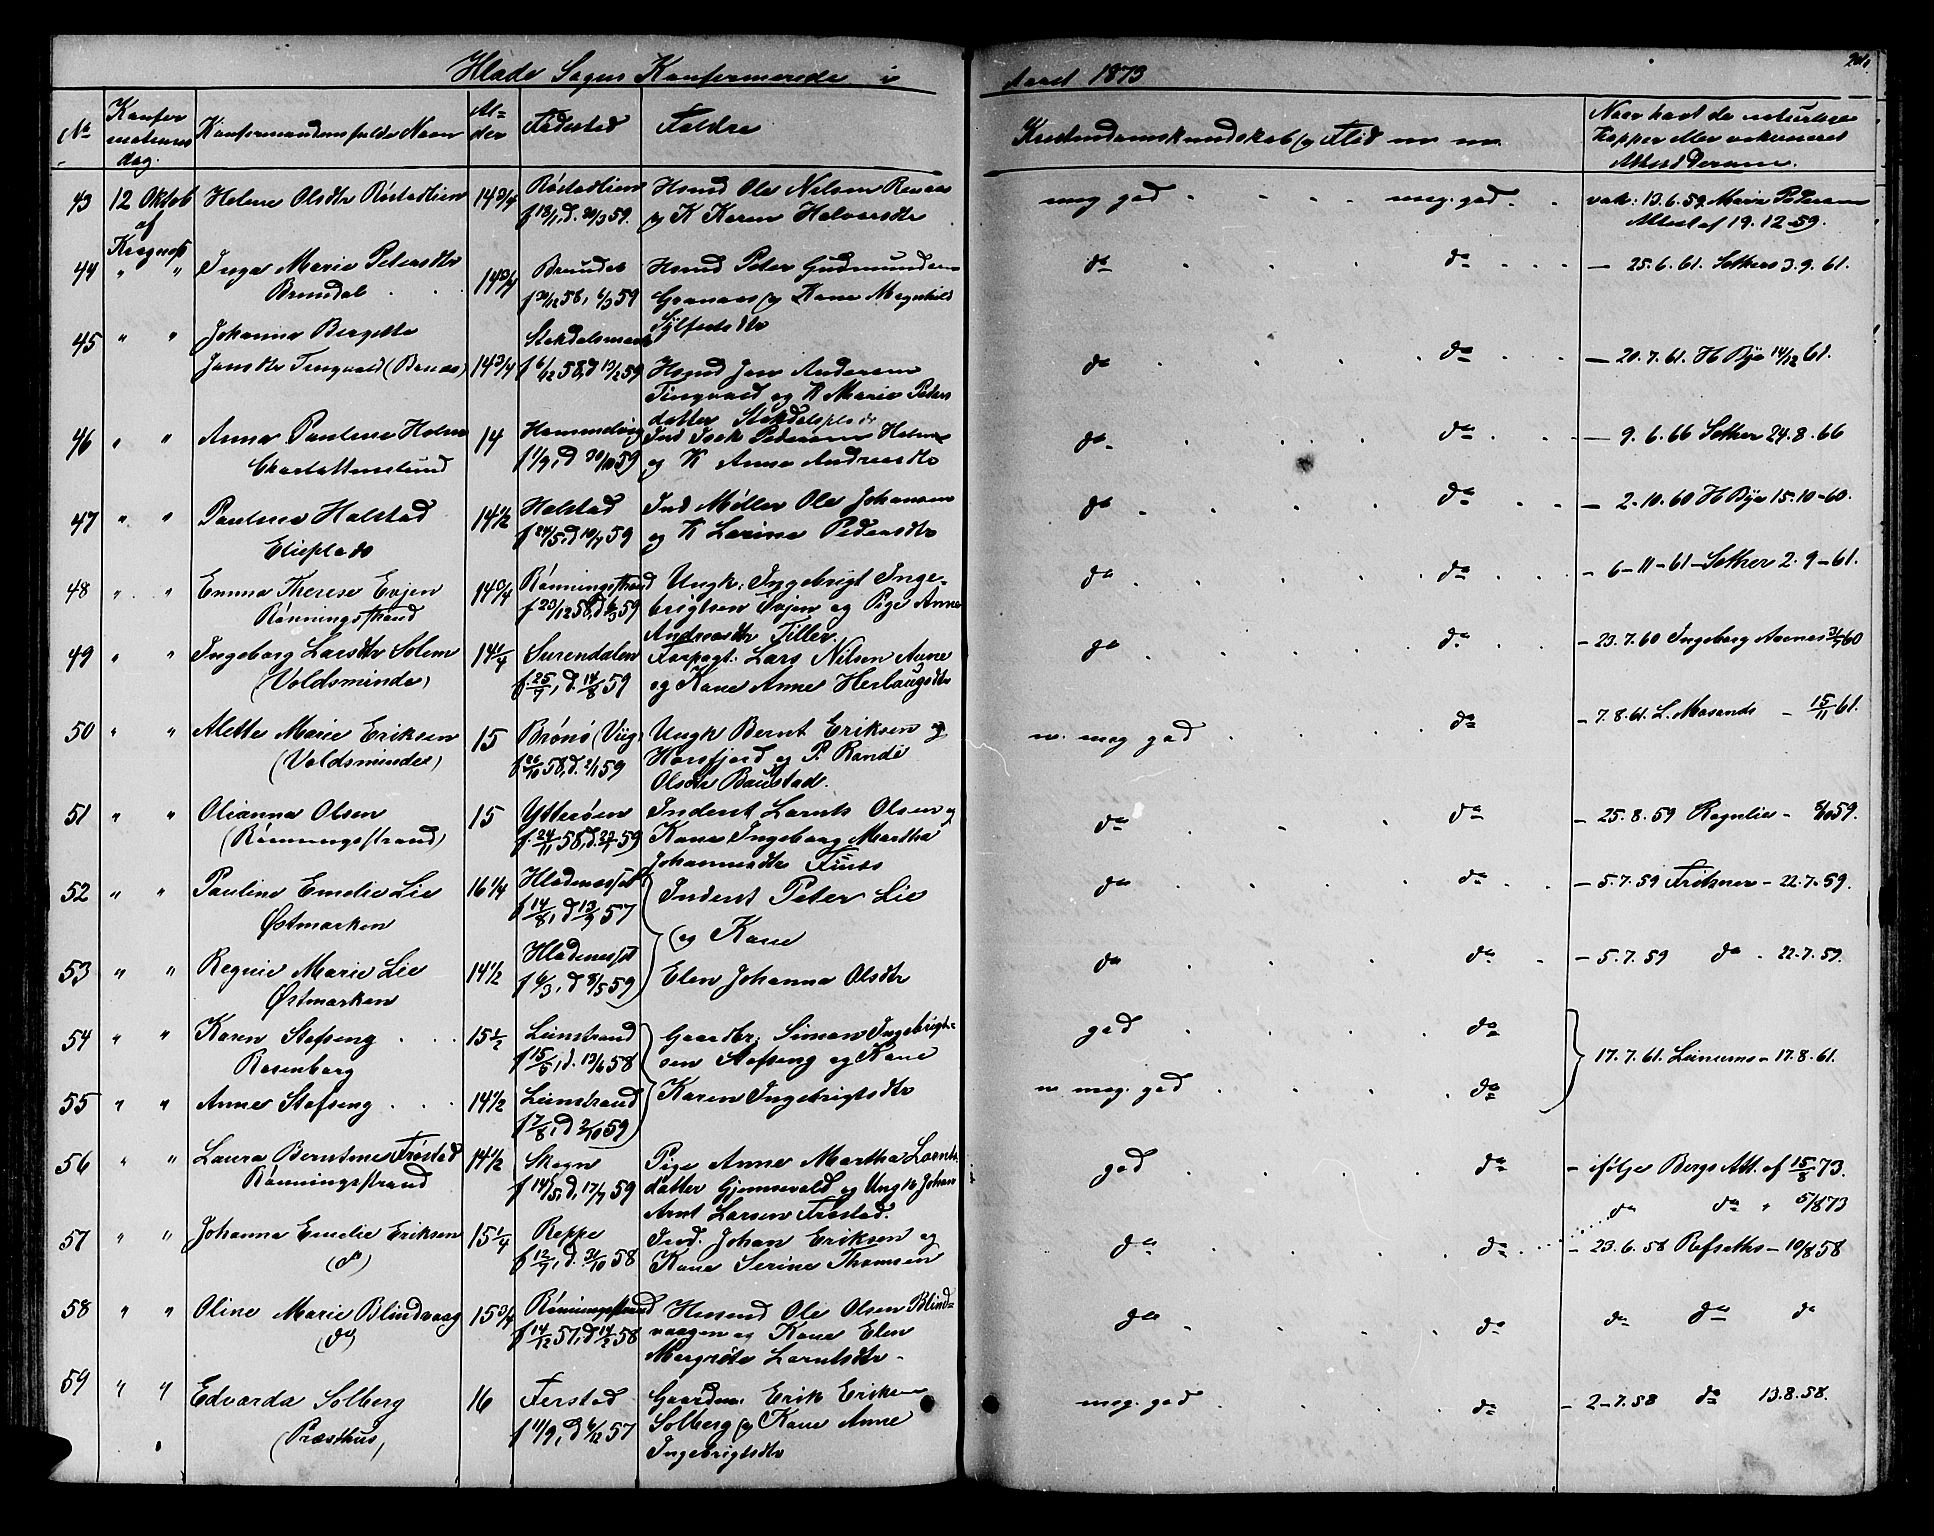 Hlade Sogns Konfirmerede i Aaret 1873
No
Konfirmations dag.
Konfirmandens fulde Navn
Alder
Fødested
Foldre
Kristendomskundskab og Flid
Naar havt de naturlige Kopper eller vakcineret
43 12 Oktob Helene Olsdtr Røstadlien 14 3/4 Røstadlien Husmd Ole Nilsen
f 18/1, d. 20/3 59. og K Karen Halvorsdtr
meg god meg. god vak: 13.6.59 Marie Pedersen
Attest af 19.12-59.
44 " " Inga Marie Petersdtr 14 3/4 Brundal Husmd Peter Gudmundsen
Brundal f 30/12 58, 6/3 59 Granaas og Kone Magnhild
Sylfestsdtr
do do - 25.6.61. Sethers 3.9.61.
45 " " Johanna Bergette
Jensdtr Tingvold 14 3/4 f 6/12 58, d 13/2 59 Husmd Jen Andersen
Tingvold og K Marie Peders
datter Stokdalsplads
do do - 20.7.61. H Bye 14/12 61.
46 " " Anna Pauline Holm 14 Hommelvig Ind Isak Pedersen Holm
Charlottenlund f 1/9, d 30/10 59 og K Anna Andreasdtr
do do - 9.6.66 Sether 24.8.66
47 " " Pauline Halstad 14 1/2 Halstad Ind Møller Ole Johansen
Elieplads f 24/5, d 10/7 59 og K Larine Pedersdtr
do do - 2-10.60 H Bye 15.10-60.
48 " " Emma Therese Evjen 14 3/4 Rønningsstrand Ungk: Ingebrigt Inge-
Rønningsstrand f 23/12 58, d 6/3 59 brigtsen Evjen og Pige Anne
Andreasdtr Tiller.
do do - 6-11-61-Sether 2.9-61.
49 " " Ingeborg Larsdtr Solem 14 1/4 Surendalen Forpagt: Lars Nilsen Aune
(Voldsminde) f 25/7, d. 14/8 59 og Kone Anne Herlaugsdtr
do do - 23.7.60 Ingeborg Aarnes 31/7 60
50 " " Alette Marie Eriksen 15 Brønø (Viig Ungk Bernt Eriksen og
(Voldsminde) f 26/10 58, d. 2/1 59 Horsfjord og P. Randi
Olsdtr Baustad.
n. meg god do - 7.8.61. L. Mosands - 15/11 61.
51 " " Olianna Olsen 15 Ytterøen Inderst Lornts Olsen og
(Rønningsstrand) f. 24/11 58, d. 27 59 Kone Ingeborg Martha
Johannesdtr
do do - 25.8.59 Rognlie - 8/10 59.
52 " " Pauline Emelie Lie 16 1/4 Hladenæsset Inderst Peter Lie
Østmarken f 14/8, d 13/9 57 og Kone
do do - 5.7.59 Fritzner - 22.7.59.
53 " " Regine Marie Lie 14 1/2 Hladenæsset Elen Johanna Olsdtr
Østmarken f 6/3, d 8/5 59
do do - 5.7.59 do - 22.7.59.
54 " " Karen Stafseng 15 1/2 Leinstrand Gaardbr: Simon Ingebrigt-
Rosenborg f 15/5, d. 13/6 58 sen Stafseng og Kone
god do
17.7.61. 17.8.61.
55 " " Anne Stafseng 14 1/2 Leinstrand Karen Ingebrigtsdtr
f 7/8, d 2/10 59
n. meg. god do
56 " " Laura Berntine Frøstad 14 1/2 Skogn Pige Anne Martha Lornts
Rønningsstrand f 14/5, d. 17/7 59 datter Gjemsevald og Ungk Johan
Arnt Larsen Frøstad.
god do - ifølje Bergs Att. af 15/8 73.
do do " 5/8 73
57 " " Johanna Emelie Eriksen 15 1/4 Reppe Ind. Johan Eriksen og
(do) f 12/7, d. 31/10 58 Kone Serine Thomsen
do do - 23.6.58 Refseths - 10/8 58
58 " " Oline Marie Blindvaag 15 3/4 Rønningsstrand Husmd Ole Olsen Blind-
(do) f 14/12 57, d 14/2 58 vaagen og Kone Elen
Margrete Larntsdtr.
do do do do do
59 " " Edvarda Solberg 16 Ferstad Gaardm: Erik Eriksen
(Præsthus) f 11/9, d 6/12 57 Solberg og Kone Anne
Ingebrigtsdtr
meg. god do - 2-7.58 do 13.8.58.